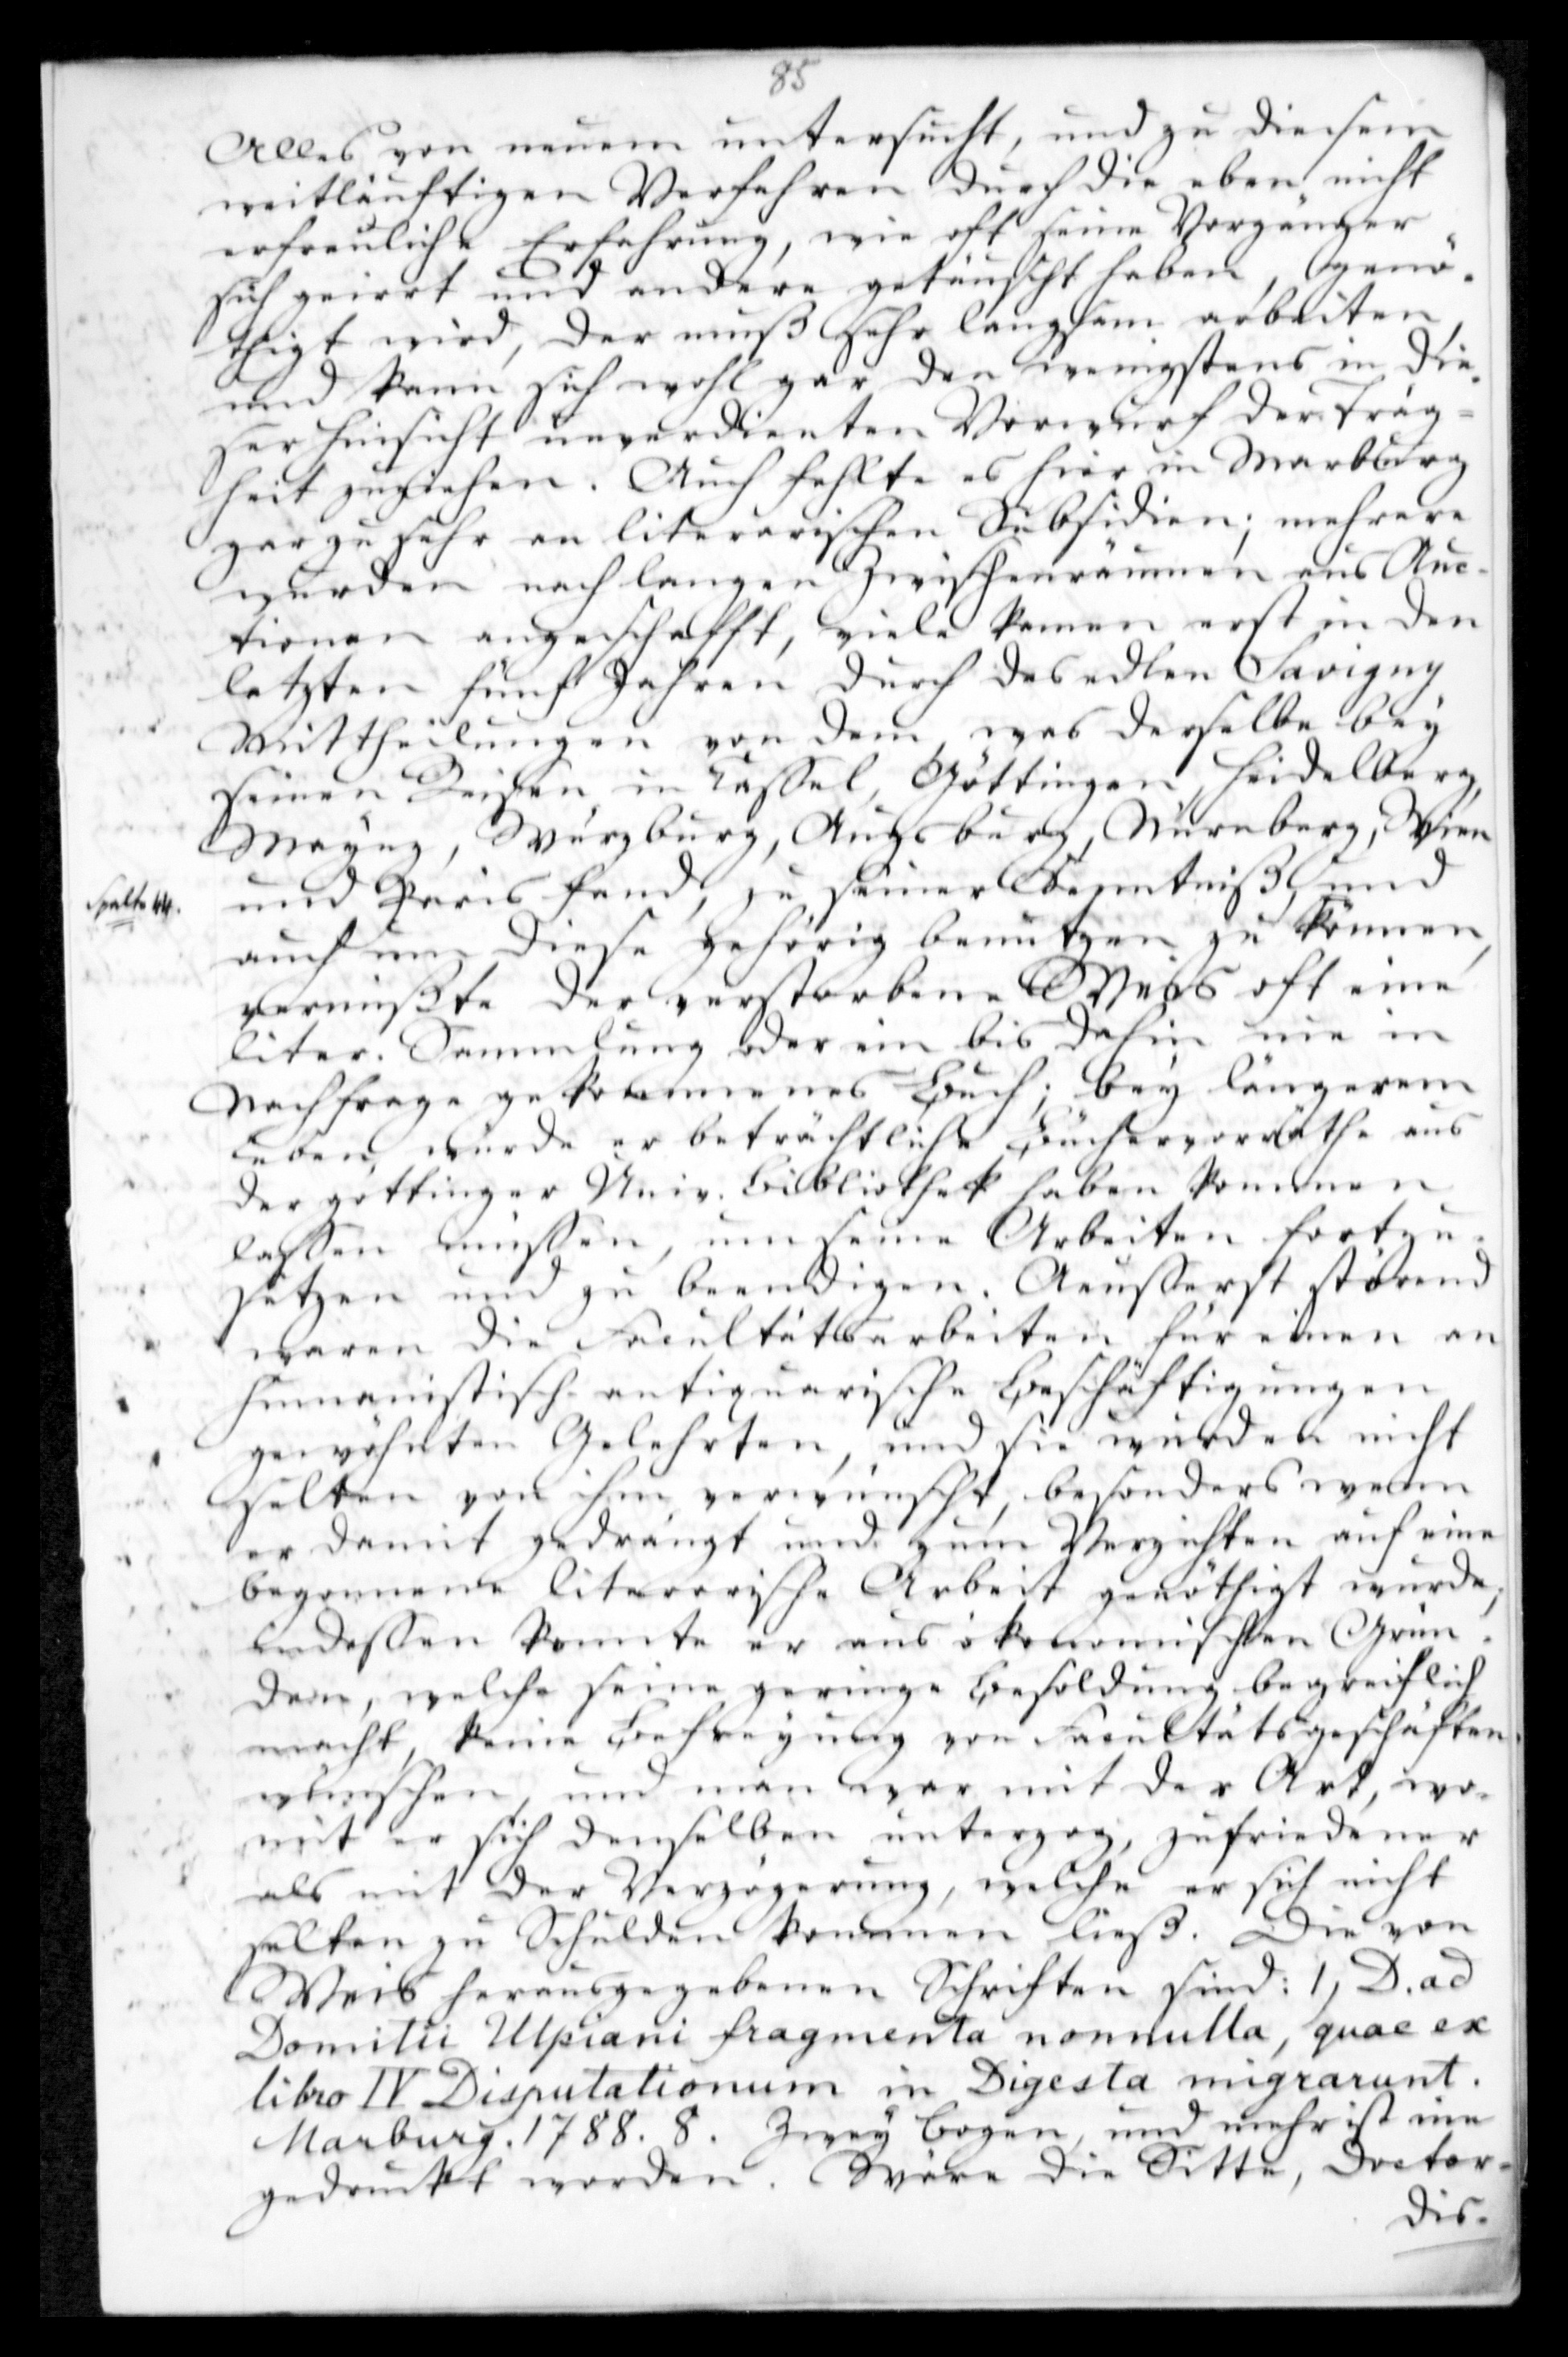 85
Alles von neuem untersucht, und zu diesem
weitläuftigen Verfahren durch die eben nicht
erfreuliche Erfahrung, wie oft seine Vorgänger
sich geirrt und andere getäuscht haben, genö-
thigt wird, der muß sehr langsam arbeiten,
und kann sich wohl gar den wenigstens in die-
ser Hinsicht unverdienten Vorwurf der Träg-
heit zuziehen. Auch fehlte es hier in Marburg
gar zu sehr an literarischen Subsidien; mehrere
wurden nach langen Zwischenräumen aus Auc-
tionen angeschafft, viele kamen erst in den
letzten fünf Jahren durch des edlen Savigny
Mittheilungen von dem, was derselbe bey
seinen Reisen in Cassel, Göttingen, Heidelberg,
Maynz, Würzburg, Augsburg, Nürnberg, Wien
Spalte 44.
und Paris fand, zu seiner Kenntniß, und
auch um diese gehörig benutzen zu können,
vermißte der verstorbene Weis oft eine
liter. Sammlung oder ein bis dahin nie in
Nachfrage gekommenes Buch; bey längerem
Leben würde er beträchtliche Büchervorräthe aus
der göttinger Univ. Bibliothek haben kommen
lassen müssen, um seine Arbeiten fortzu-
setzen und zu beendigen. Aeusserst störend
waren die Facultätsarbeiten für einen an
humanistisch-antiquarische Beschäftigungen
gewöhnten Gelehrten, und sie wurden nicht
selten von ihm verwünscht, besonders wenn
er damit gedrängt und zum Verzichten auf eine
begonnene literarische Arbeit genöthigt wurde;
indessen konnte er aus ökonomischen Grün-
den, welche seine geringe Besoldung begreiflich
macht, keine Befreyung von Facultätsgeschäften
wünschen, und man war mit der Art, wo-
mit er sich denselben unterzog, zufriedener
als mit der Verzögerung, welche er sich nicht
selten zu Schulden kommen ließ. Die von
Weis herausgegebenen Schriften sind: 1, D. ad
Domitii Ulpiani fragmenta nonnulla, quae ex
libro IV Disputationum in Digesta migrarunt.
Marburg. 1788. 8. Zwey Bogen, und mehr ist nie
gedruckt worden. Wäre die Sitte, Doctor-
dis-